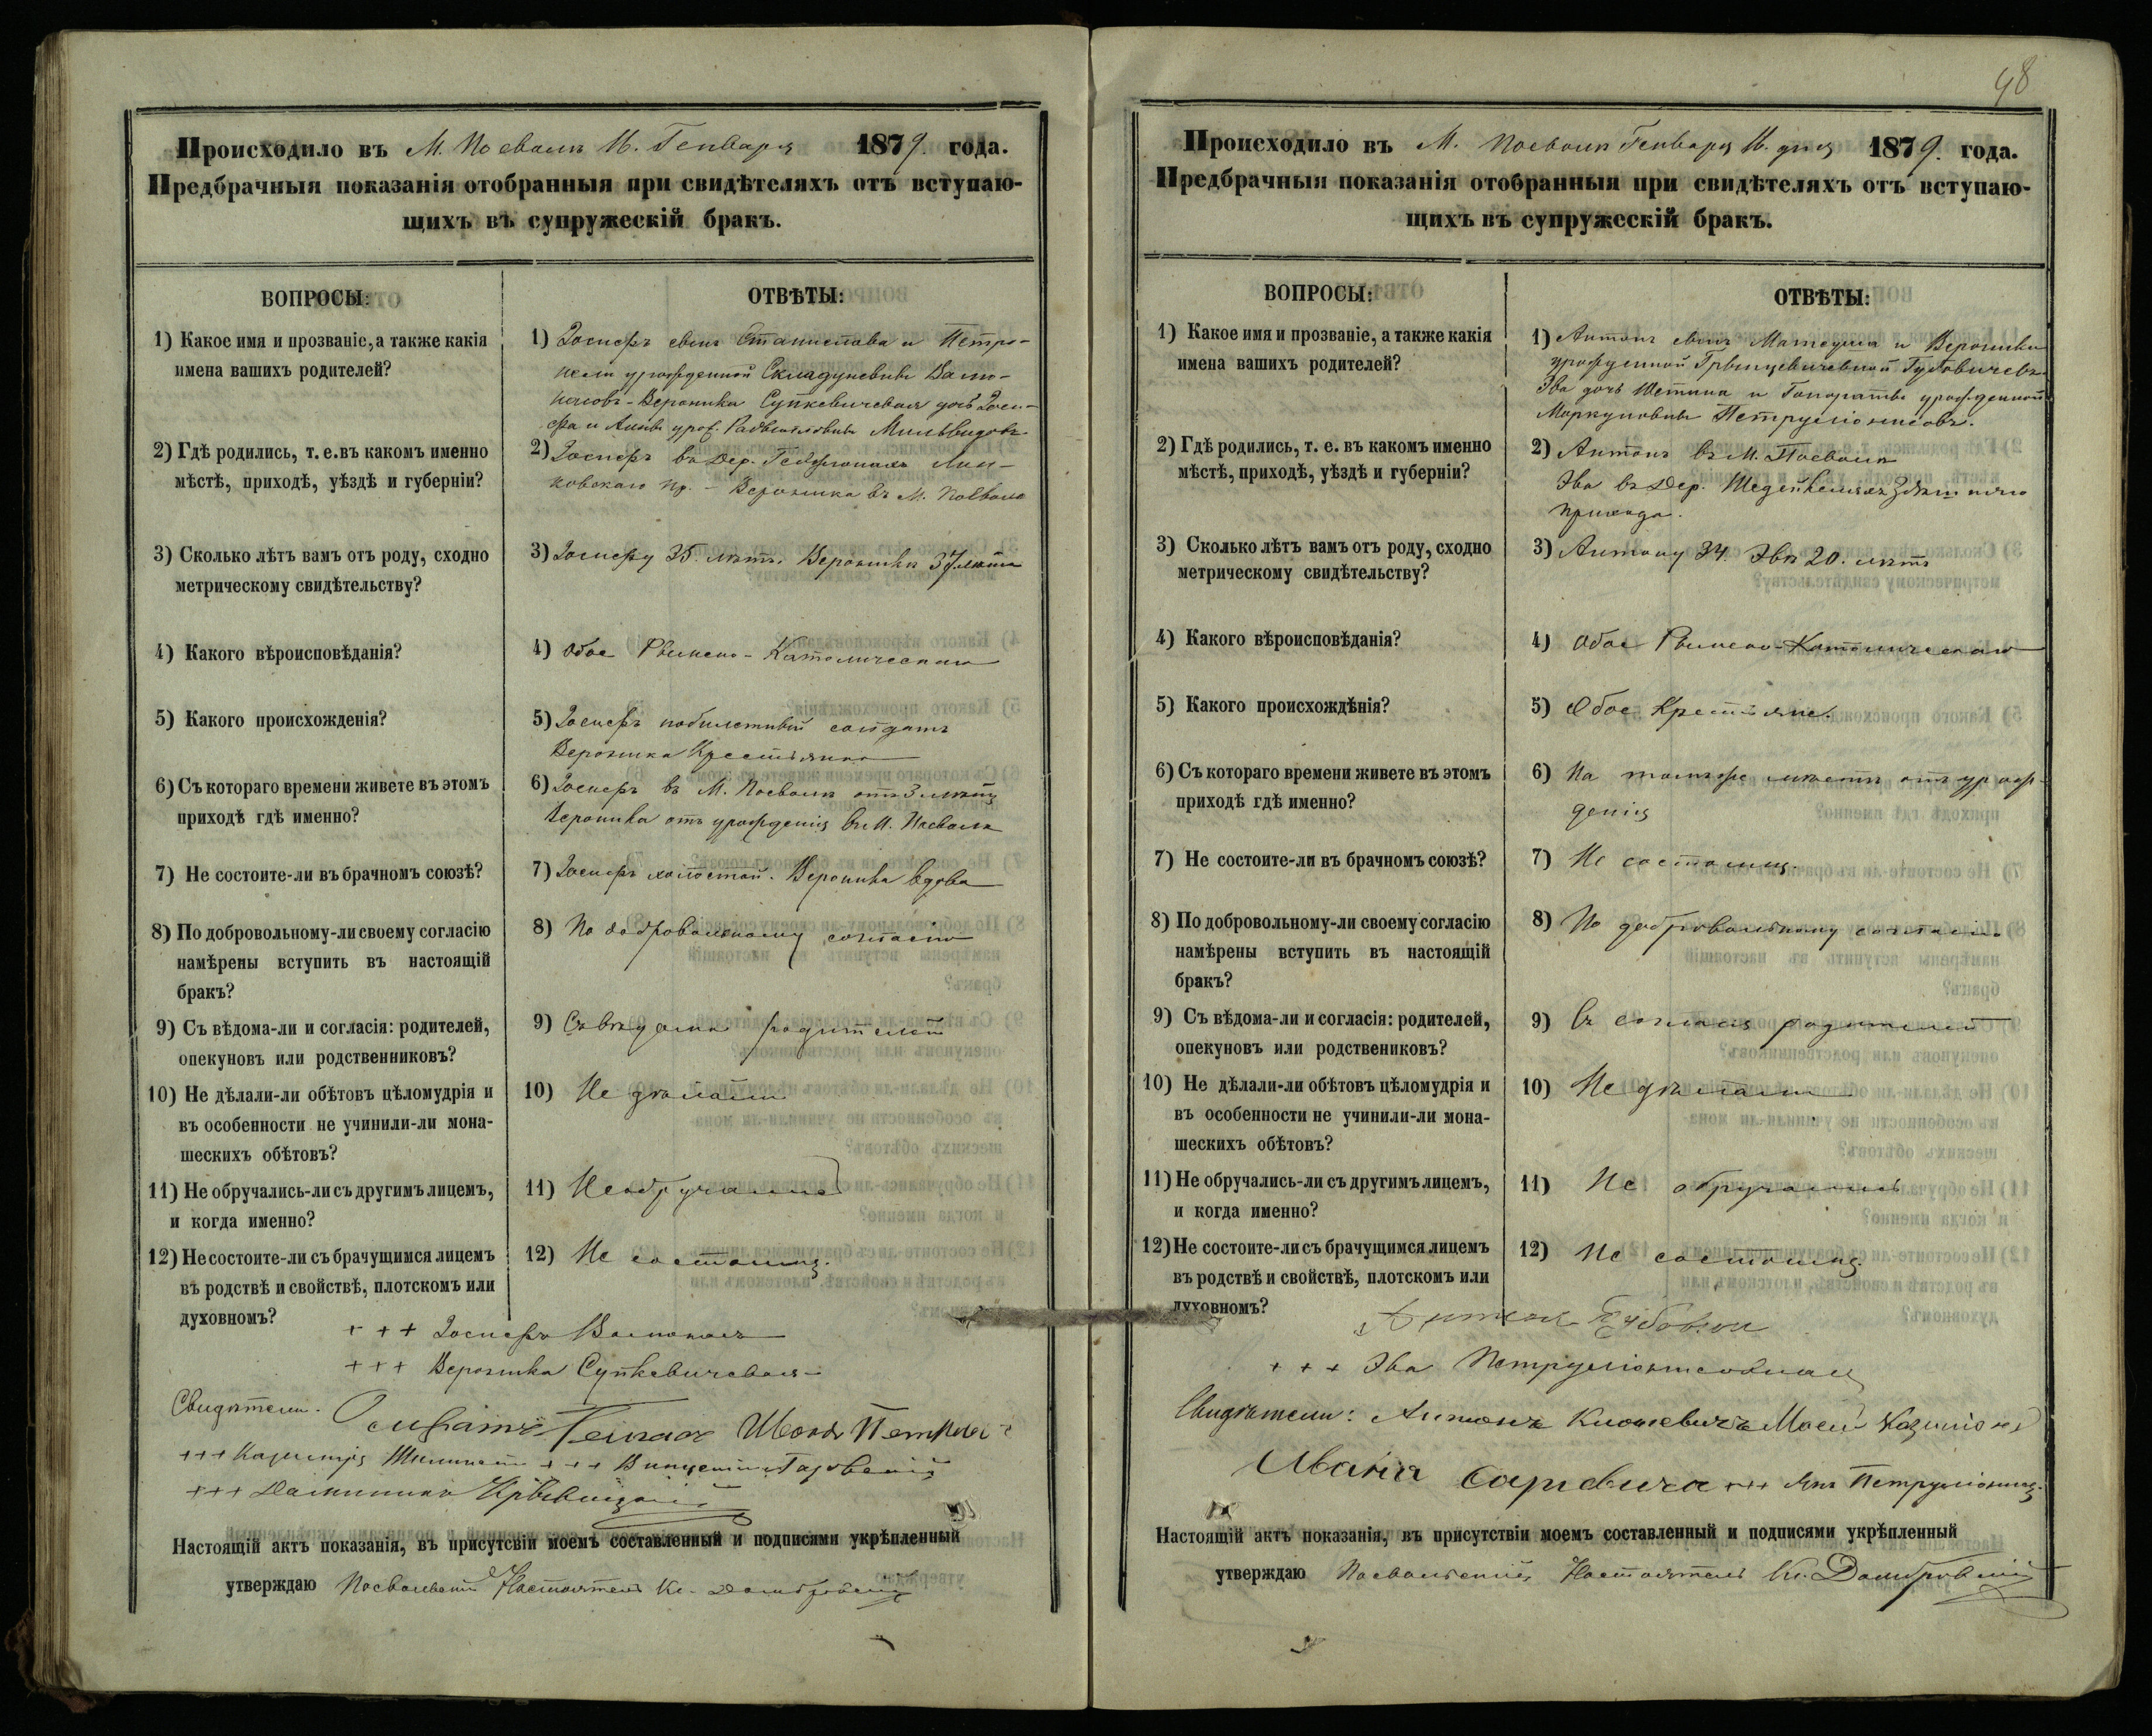 Происходило въ М. Посволѣ 16. Генваря 1879. года.
Предбрачныя показанія отобранныя при свидѣтеляхъ отъ вступаю-
щихъ въ супружескій бракъ.
ВОПРОСЫ:
ОТВѢТЫ:
1) Какое имя и прозваніе, а также какія
имена вашихъ родителей?
1) Іосифъ сынъ Станислава и Петро-
нели урожденной
Вероника Супкевичевая дочь Іоси-
фа и Анны урож.
2) Гдѣ родились, т. е. въ какомъ именно
мѣстѣ, приходѣ, уѣздѣ и губерніи?
2) Іосифъ въ Дер. Лин-
ковскаго пр. - Вероника въ М. Посволѣ
3) Сколько лѣтъ вамъ отъ роду, сходно
метрическому свидѣтельству?
3) Іосифу 35. лѣтъ. Вероника 37 лѣтъ
4) Какого вѣроисповѣданія?
4) Обое Римско-Католическаго
5) Какого происхожденія?
5) Іосифъ солдатъ
Вероника Крестьянка
6) Съ котораго времени живете въ этомъ
приходѣ гдѣ именно?
6) Іосифъ въ М. Посволѣ отъ 3 лѣтъ
Вероника отъ урожденія въ М. Посволѣ
7) Не состоите-ли въ брачномъ союзѣ?
7) Іосифъ холостой. Вероника вдова
8) По добровольному-ли своему согласію
намѣрены вступить въ настоящій
бракъ?
8) По добровольному согласію
9) Съ вѣдома-ли и согласія: родителей,
опекуновъ или родственниковъ?
9) Съ вѣдома родителей
10) Не дѣлали-ли обѣтовъ цѣломудрія и
въ особенности не учинили-ли мона-
шескихъ обѣтовъ?
10) Не дѣлали
11) Не обручались-ли съ другимъ лицемъ,
и когда именно?
11) Необручались
12) Несостоите-ли съ брачущимся лицемъ
въ родствѣ и свойствѣ, плотскомъ или
духовномъ?
12) Не состоимъ.
+ + + Іосифъ
+ + + Вероника Супкевичевая
Свидѣтели.
+++ Казиміръ +++ Винцентій
+++ Доминикъ
Настоящій актъ показанія, въ присутсвіи моемъ составленный и подписями укрѣпленный
утверждаю Посвольскій Настоятель Кс. Домбровскій
48
Происходило въ М. Посволѣ Генваря 16. дня 1879. года.
Предбрачныя показанія отобранныя при свидѣтеляхъ отъ вступаю-
щихъ въ супружескій бракъ.
ВОПРОСЫ:
ОТВѢТЫ:
1) Какое имя и прозваніе, а также какія
имена вашихъ родителей?
1) Антонъ сынъ Матеуша и Вероники
урожденной
Эва дочь и Гоноратъ урожденной
2) Гдѣ родились, т. е. въ какомъ именно
мѣстѣ, приходѣ, уѣздѣ и губерніи?
2) Антонъ въ М. Посволѣ
Эва въ Дер.
прихода.
3) Сколько лѣтъ вамъ отъ роду, сходно
метрическому свидѣтельству?
3) Антону 34. Эвѣ 20. лѣтъ
4) Какого вѣроисповѣданія?
4) Обое Римско-Католическаго
5) Какого происхождѣнія?
5) Обое Крестьяне.
6) Съ котораго времени живете въ этомъ
приходѣ гдѣ именно?
6) На томъ же мѣстѣ отъ урож-
денія
7) Не состоите-ли въ брачномъ союзѣ?
7) Не состоимъ.
8) По добровольному-ли своему согласію
намѣрены вступить въ настоящій
бракъ?
8) По добровольному согласію
9) Съ вѣдома-ли и согласія: родителей,
опекуновъ или родствениковъ?
9) Съ согласія родителей
10) Не дѣлали-ли обѣтовъ цѣломудрія и
въ особенности не учинили-ли мона-
шескихъ обѣтовъ?
10) Не дѣлали
11) Не обручались-ли съ другимъ лицемъ,
и когда именно?
11) Не обручались
12) Не состоите-ли съ брачущимся лицемъ
въ родствѣ и свойствѣ, плотскомъ или
духовномъ?
12) Не состоимъ.
+ + + Эва
Свидѣтели: Антонъ
Ивана +++ Янъ
Настоящій актъ показанія, въ присутствіи моемъ составленный и подписями укрѣпленный
утверждаю Посвольскій Настоятель Кс. Домбровскій